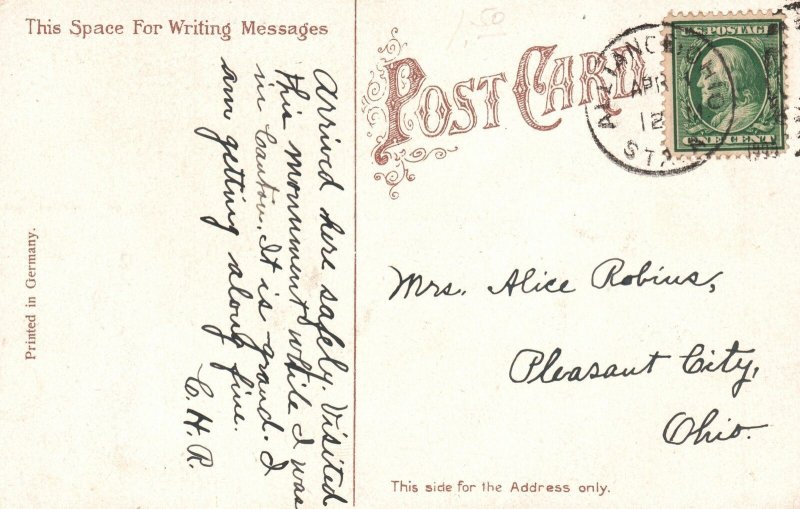 This Space For Writing Messages
Arrived here safely. Visited
this monument while I was
in Canton. It is grand. I
am getting along fine.
C. H. R.
Printed in Germany.
1.50
POST CARD
ALLIANCE, OHIO
APR
12
STA.
U.S. POSTAGE
ONE CENT
Mrs. Alice Robins,
Pleasant City,
Ohio.
This side for the Address only.